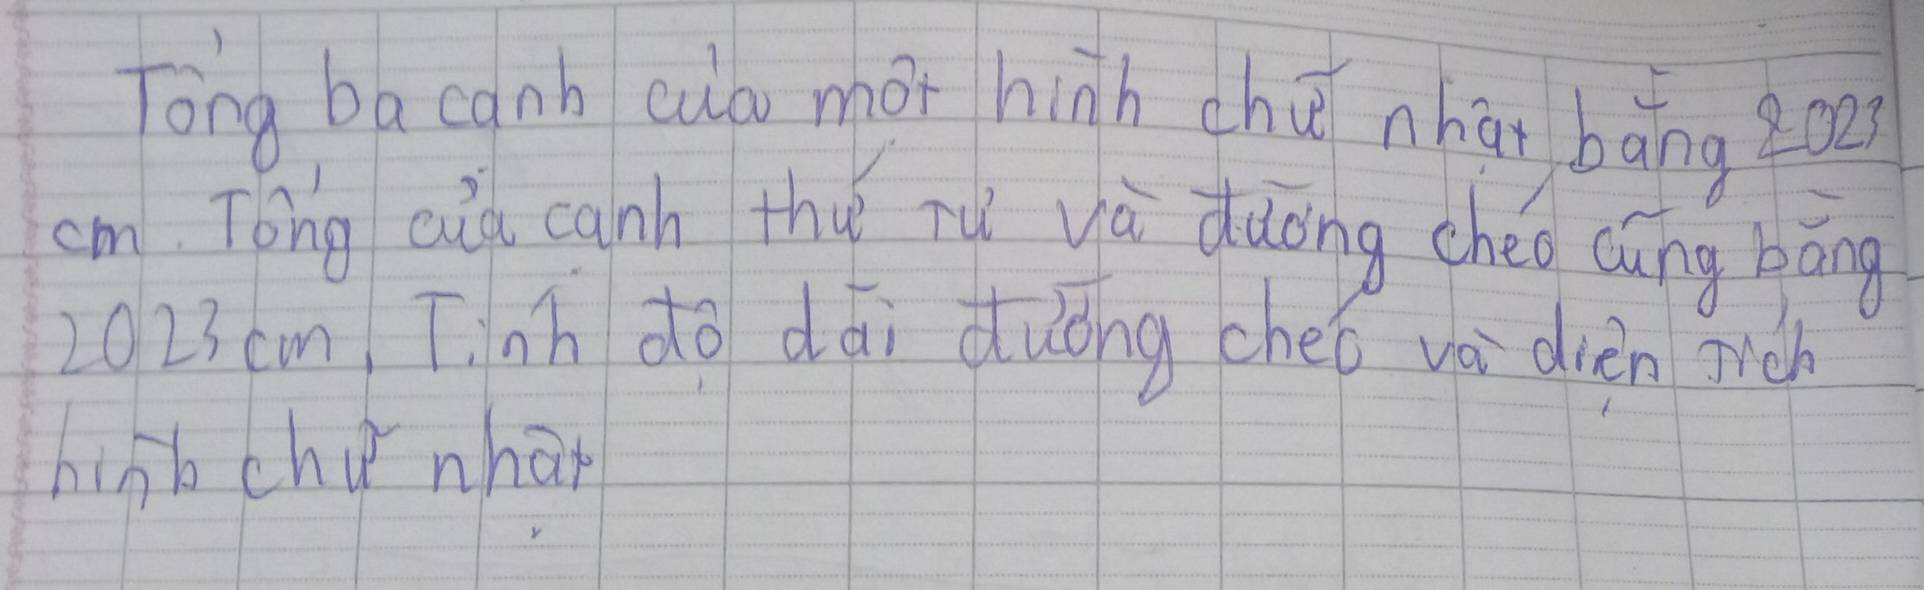 Tổng ba cạnh của một hình chữ nhật bằng 2023
cm. Tổng của cạnh thứ tư và đường chéo cũng bằng
2023 cm, Tính độ dài đường chéo và diện tích
hình chữ nhật